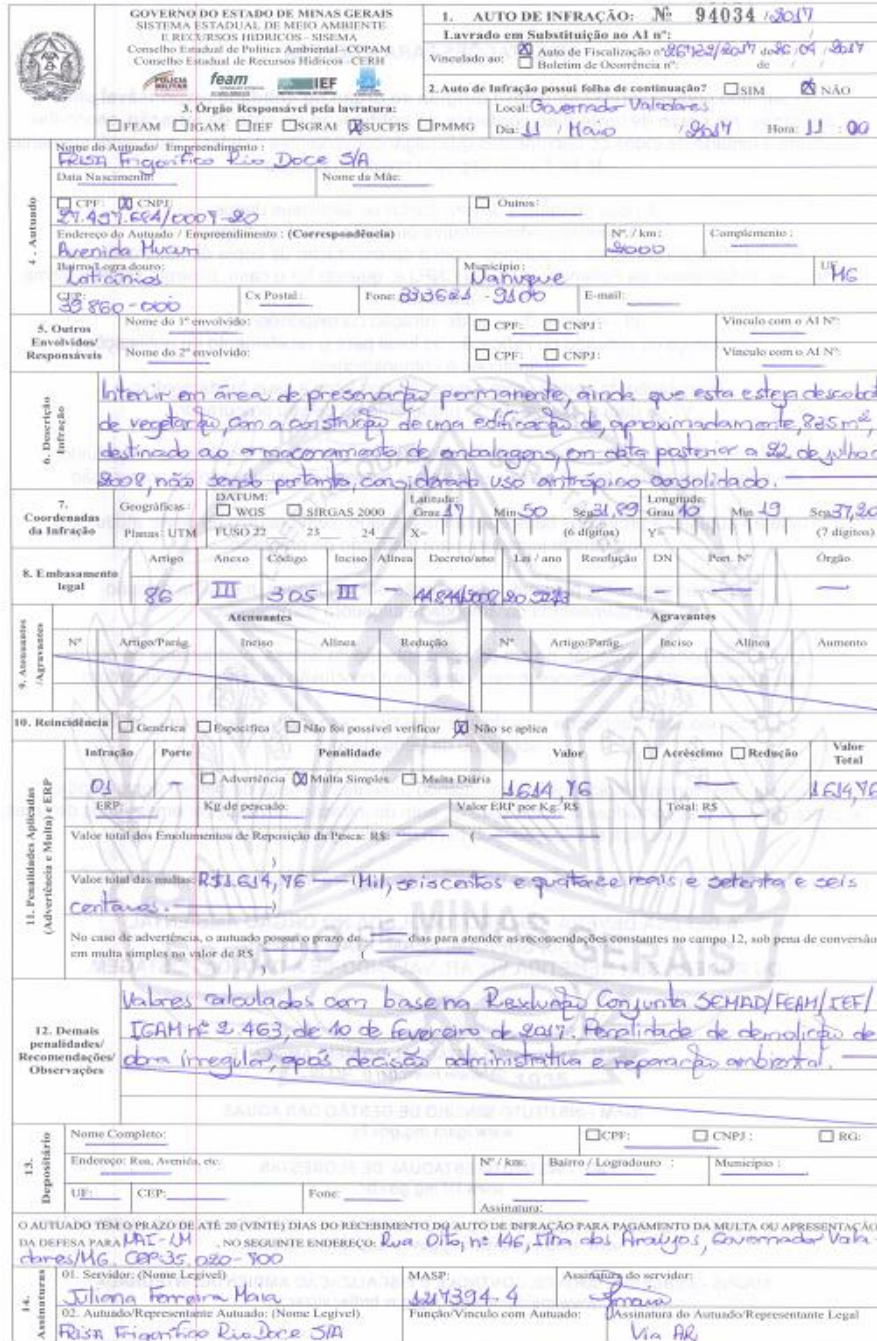 GOVERNO DO ESTADO DE MINAS GERAIS
SISTEMA ESTADUAL DE MEIO AMBIENTE
E RECURSOS HIDRICOS - SISEMA
Conselho Estadual de Política Ambiental - COPAM
Conselho Estadual de Recursos Hídricos - CERH
POLÍCIA MILITAR feam IEF
1. AUTO DE INFRAÇÃO: Nº 94034 /2017
Lavrado em Substituição ao AI nº: /
Vinculado ao: Auto de Fiscalização nº 26722/2017 de 26/04/2017
Boletim de Ocorrência nº: de /
2. Auto de Infração possui folha de continuação? SIM NÃO
3. Órgão Responsável pela lavratura:
FEAM IGAM IEF SGRAI SUCFIS PMMG
Local: Governador Valadares
Dia: 11 / Maio / 2017 Hora: 11 : 00
4. Autuado
Nome do Autuado/ Empreendimento :
FRISA Frigorífico Rio Doce S/A
Data Nascimento: Nome da Mãe:
CPF: CNPJ: Outros:
27.497.684/0007-20
Endereço do Autuado / Empreendimento : (Correspondência) Nº. / km: Complemento :
Avenida Mucuri 2000
Bairro/Logradouro: Município : UF
Laticínios Nanuque MG
CEP: Cx Postal: Fone: 333621-9100 E-mail:
39860-000
5. Outros Envolvidos/ Responsáveis
Nome do 1º envolvido: CPF: CNPJ: Vínculo com o AI Nº:
Nome do 2º envolvido: CPF: CNPJ: Vínculo com o AI Nº:
6. Descrição Infração
Intervir em área de preservação permanente, ainda que esta esteja descobert
de vegetação, com a construção de uma edificação de, aproximadamente, 835m²,
destinado ao armazenamento de embalagens, em data posterior a 22 de julho d
2008, não sendo portanto, considerado uso antrópico consolidado.
7. Coordenadas da Infração
Geográficas : DATUM: WGS SIRGAS 2000 Latitude: Grau 17 Min 50 Seg 31,89 Longitude: Grau 40 Min 19 Seg 37,20
Planas: UTM FUSO 22 23 24 X= (6 dígitos) Y= (7 dígitos)
8. Embasamento legal
Artigo Anexo Código Inciso Alínea Decreto/ano Lei / ano Resolução DN Port. Nº Órgão
86 III 305 III - 44844/2008 - - - -
9. Atenuantes /Agravantes
Atenuantes Agravantes
Nº Artigo/Parág. Inciso Alínea Redução Nº Artigo/Parág. Inciso Alínea Aumento
10. Reincidência Genérica Específica Não foi possível verificar Não se aplica
11. Penalidades Aplicadas (Advertência e Multa) e ERP
Infração Porte Penalidade Valor Acréscimo Redução Valor Total
01 - Advertência Multa Simples Multa Diária 1614,76 - 1614,76
ERP: Kg de pescado: Valor ERP por Kg: R$ Total: R$
Valor total dos Emolumentos de Reposição da Pesca: R$: (
)
Valor total das multas: R$1.614,76 (Mil, seiscentos e quatorze reais e setenta e seis
centavos. )
No caso de advertência, o autuado possui o prazo de dias para atender as recomendações constantes no campo 12, sob pena de conversão
em multa simples no valor de R$ (
)
12. Demais penalidades/ Recomendações/ Observações
Valores calculados com base na Resolução Conjunta SEMAD/FEAM/IEF/
IGAM nº 2.463, de 10 de fevereiro de 2017. Penalidade de demolição de
obra irregular, após decisão administrativa e reparação ambiental.
ESTADO DE MINAS GERAIS
13. Depositário
Nome Completo: CPF: CNPJ : RG:
Endereço: Rua, Avenida, etc. Nº / km: Bairro / Logradouro : Município :
UF: CEP: Fone: Assinatura:
O AUTUADO TEM O PRAZO DE ATÉ 20 (VINTE) DIAS DO RECEBIMENTO DO AUTO DE INFRAÇÃO PARA PAGAMENTO DA MULTA OU APRESENTAÇÃO
DA DEFESA PARA NAI-LM , NO SEGUINTE ENDEREÇO: Rua Oito, nº 146, Ilha dos Araújos, Governador Vala-
dares/MG. CEP 35.020-700
14. Assinaturas
01. Servidor: (Nome Legível) MASP: Assinatura do servidor:
Juliana Ferreira Maia 1217394-4
02. Autuado/Representante Autuado: (Nome Legível) Função/Vínculo com Autuado: Assinatura do Autuado/Representante Legal
FRISA Frigorífico Rio Doce S/A Via AR